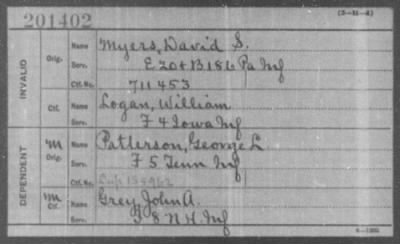 201402 (3-11-a)
INVALID
Orig. Name Myers, David S.
Serv. E 20 & B 186 Pa Inf
Ctf. No. 711453
Ctf. Name Logan, William
Serv. F 4 Iowa Inf
DEPENDENT
M Orig. Name Patterson, George L
Serv. F 5 Tenn Inf
Ctf. No.
M Ctf. Name Grey, John A.
Serv. 8 N H Inf